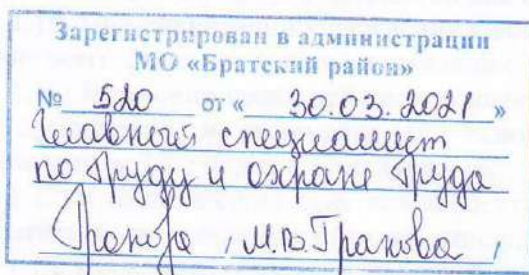 Зарегистрирован в администрации
МО «Братский район»
№ 520 от « 30.03.2021 »
Главный специалист
по труду и охране труда
/ М.В. Транова /